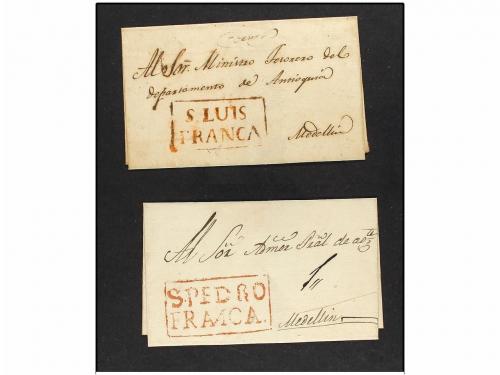 Al Sor. Ministro Tesorero del
departamento de Antioquia
S. LUIS
FRANCA
Medellin
Al Sor Admor Pral de
S. PEDRO
FRANCA.
Medellin